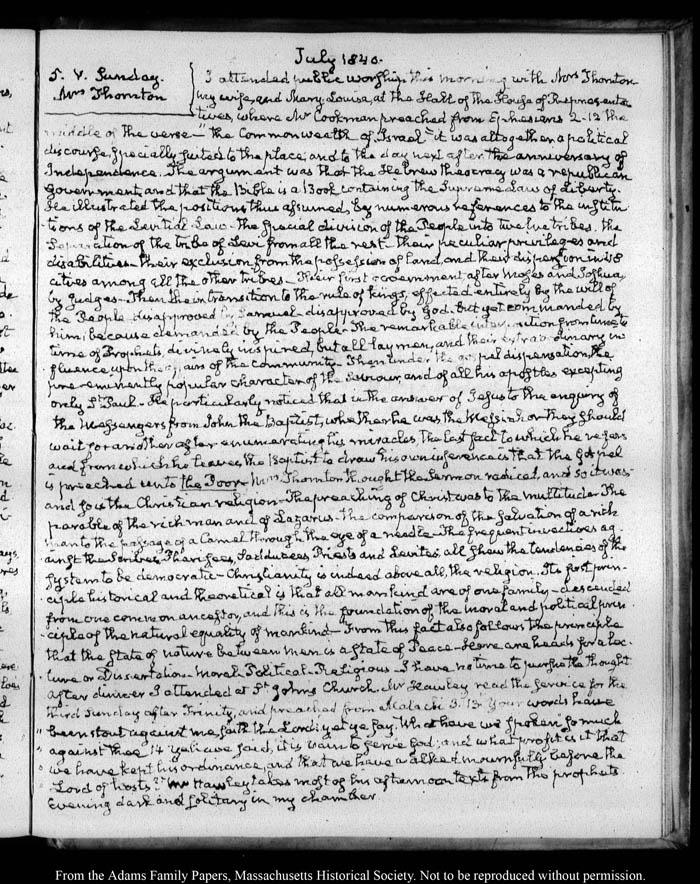 July 1840.
5. V. Sunday. I attended public worship this morning with Mrs Thornton
Mrs Thornton my wife, and Mary Louisa, at the Hall of the House of Representa-
tives, where Mr Cookman preached from Ephesians 2-12 the
middle of the verse "the Commonwealth of Israel" it was altogether a political
discourse, specially suited to the place, and to the day next after the anniversary of
Independence. The argument was that the Hebrew theocracy was a republican
Government, and that the Bible is a Book containing the Supreme Law of Liberty.
He illustrated the positions thus assumed, by numerous references to the institu
tions of the Levitical Law - the special division of the People into twelve tribes. the
Separation of the tribe of Levi from all the rest - their peculiar privileges and
disabilities - their exclusion from the possession of land, and their dispersion in 48
cities among all the other tribes - Their first government after Moses and Joshua,
by judges - Then the transition to the rule of Kings, effected entirely by the will of
the People disapproved by Samuel - disapproved by God. but yet commanded by
him, because demanded by the People - The remarkable from time to
time of Prophets, divinely inspired, but all laymen, and their extraordinary in
fluence upon the of the community - Then under the gospel dispensation, the
pre-eminently popular character of the Saviour, and of all his apostles excepting
only St Paul - He particularly noticed that in the answer of Jesus to the enquiry of
the Messengers from John the Baptist, whether he was the Messiah or they should
wait for another after enumerating his miracles, the last fact to which he refers
and from which he leaves the Baptist to draw his own inference is that the Gospel
is preached unto the Poor. Mrs Thornton thought the Sermon radical, and so it was
and so is the Christian religion. The preaching of Christ was to the multitude. The
parable of the rich man and of Lazarus - the comparison of the salvation of a rich
man to the passage of a Camel through the eye of a needle - The frequent invectives ag-
ainst the Scribes, Pharisees, Sadducees, Priests and Levites, all shew the tendencies of the
system to be democratic - Christianity is indeed above all, the religion. Its first prin-
ciple historical and theoretical is that all mankind are of one family - descended
from one common ancestor, and this is the foundation of the moral and political prin
ciple of the natural equality of mankind - From this fact also follows the principle
that the State of nature between men is a state of Peace - Here are heads for a Lec
ture or Dissertation - Moral - Political - Religious - I have no time to pursue the thought
after dinner I attended at St Johns Church. Mr Hawley read the service for the
third Sunday after Trinity, and preached from Malachi 3.13 Your words have
" been stout against me, saith the Lord: yet ye say, What have we spoken so much
" against thee. 14 Ye have said, it is vain to serve God; and what profit is it that
" we have kept his ordinance, and that we have walked mournfully before the
" Lord of hosts?" Mr Hawley takes most of his afternoon texts from the prophets
Evening dark and solitary in my chamber.
From the Adams Family Papers, Massachusetts Historical Society. Not to be reproduced without permission.